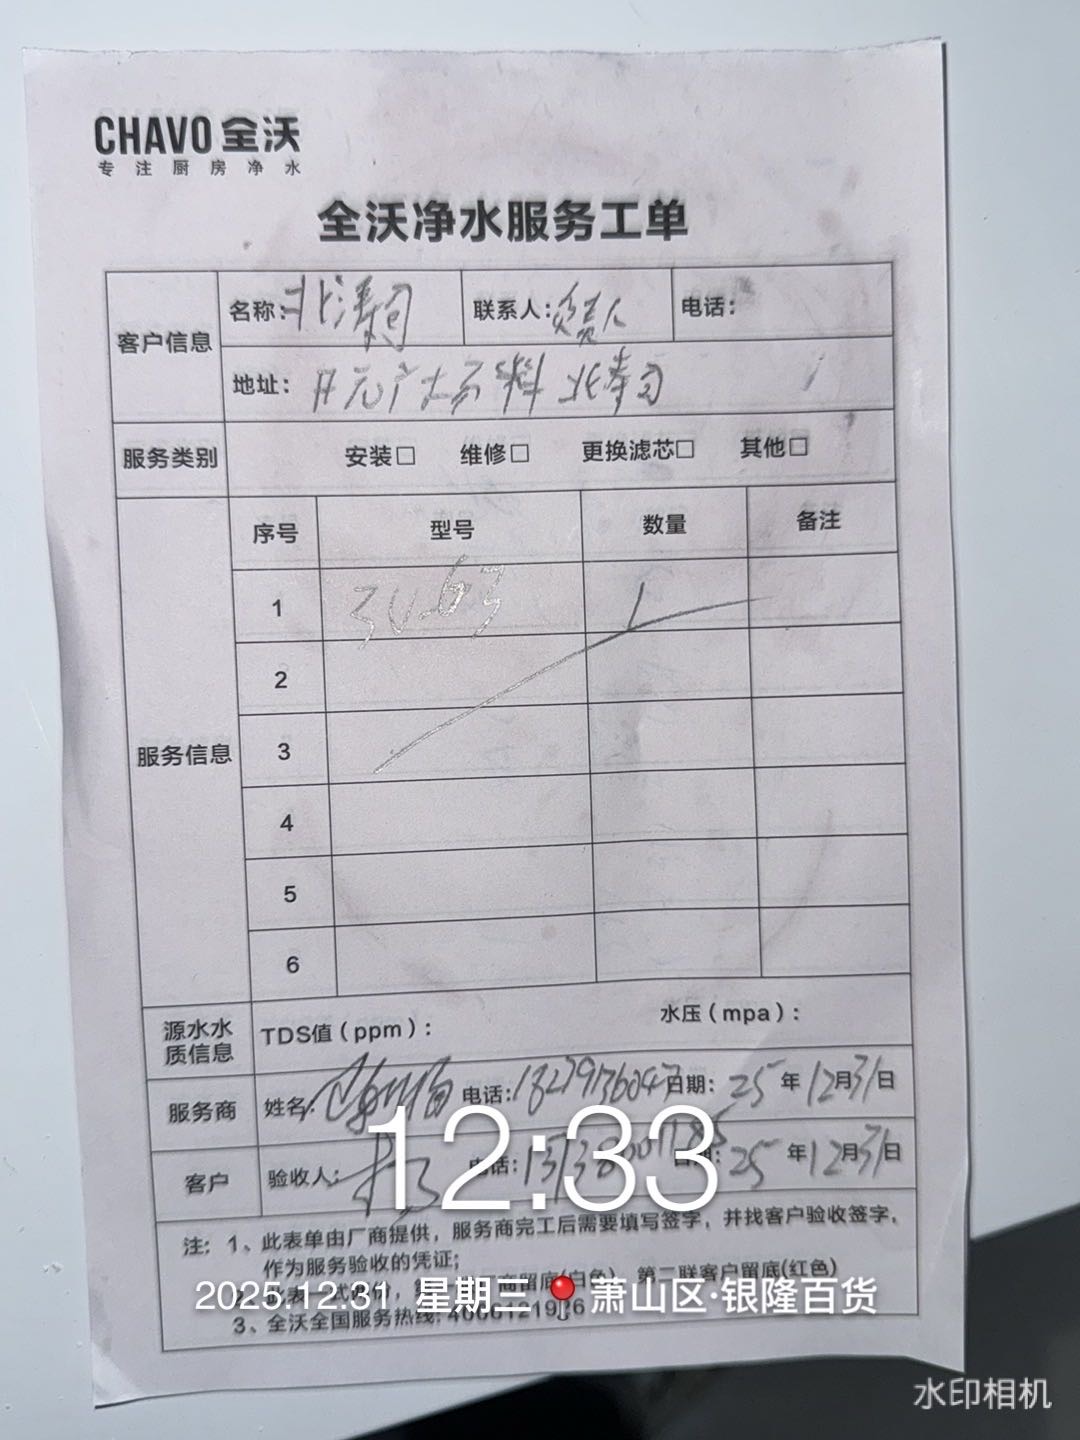 CHAVO 全沃
专注厨房净水
全沃净水服务工单
客户信息 名称: 联系人:负责人 电话:
地址: 开元广场
服务类别 安装□ 维修□ 更换滤芯□ 其他□
服务信息 序号 型号 数量 备注
1 3V-63 1
2
3
4
5
6
源水水质信息 TDS值(ppm): 水压(mpa):
服务商 姓名: 电话: 日期: 25年12月31日
客户 验收人: 电话: 日期: 25年12月31日
注: 1、此表单由厂商提供,服务商完工后需要填写签字,并找客户验收签字,
作为服务验收的凭证;
2、此表一式两份,第一联厂商留底(白色),第二联客户留底(红色)
3、全沃全国服务热线: 4000121926
12:33
2025.12.31 星期三 萧山区·银隆百货
水印相机